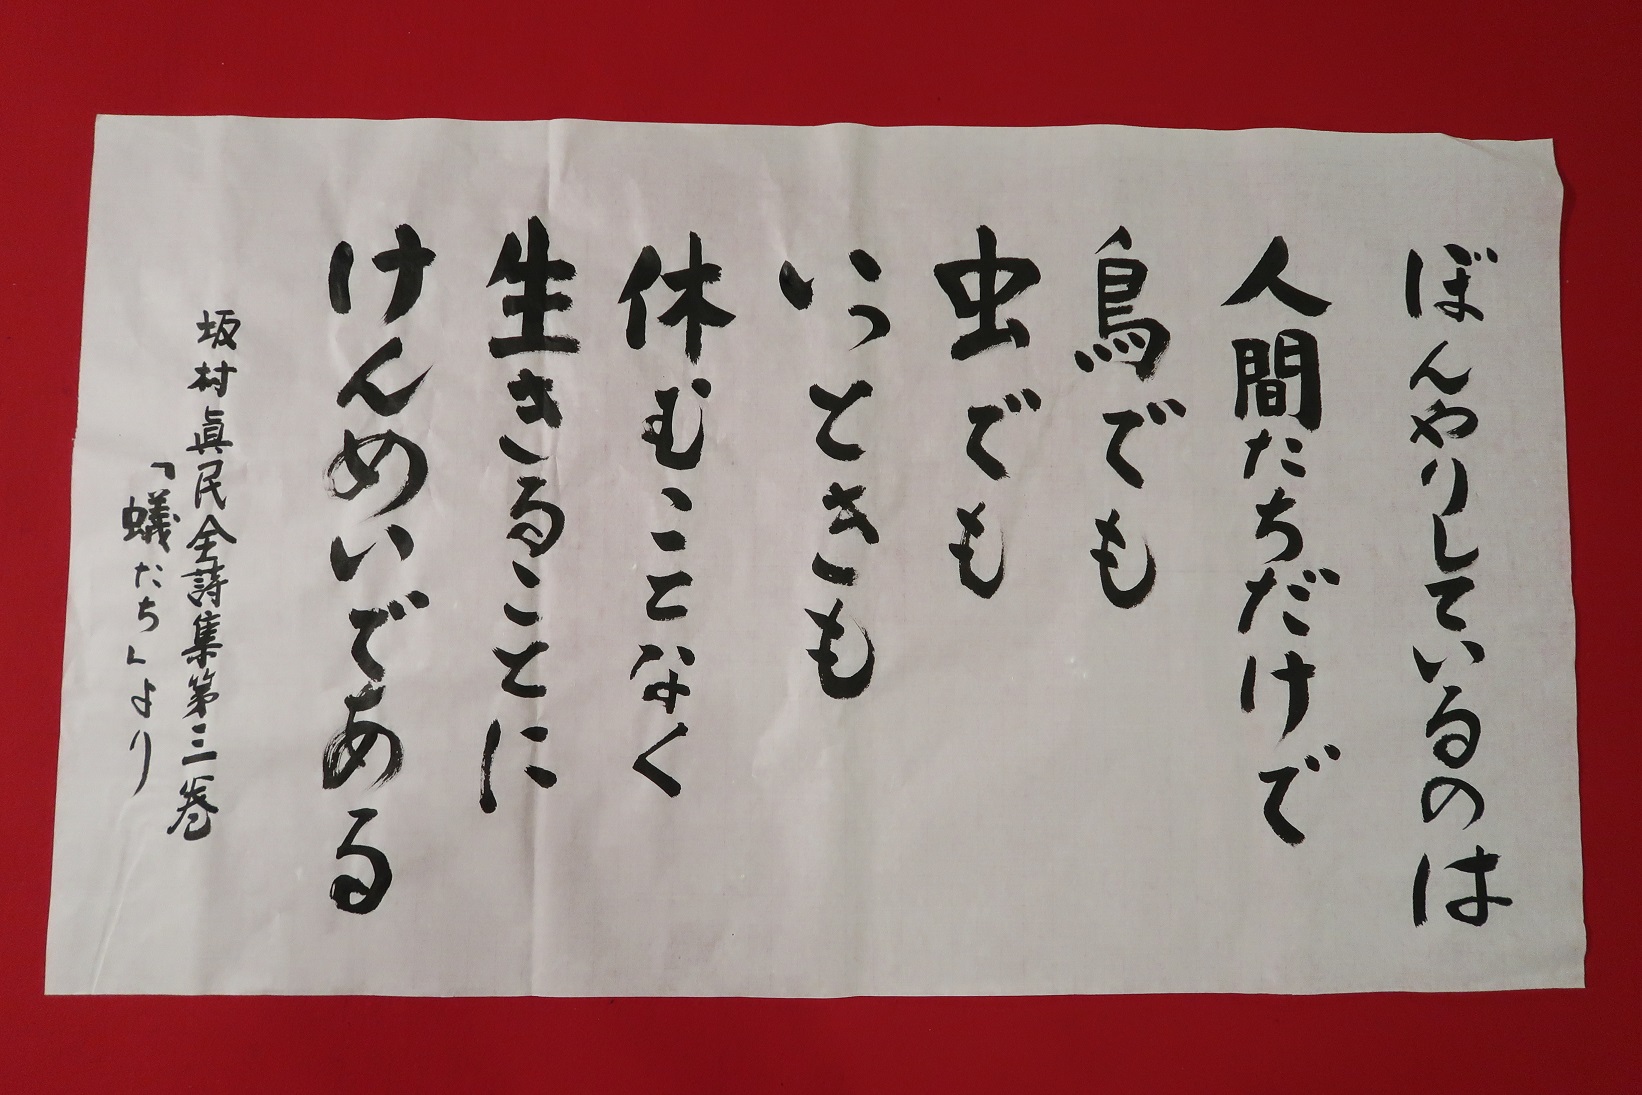 ぼんやりしているのは
人間たちだけで
鳥でも
虫でも
いっときも
休むことなく
生きることに
けんめいである
坂村眞民全詩集第三巻
「蟻たち」より